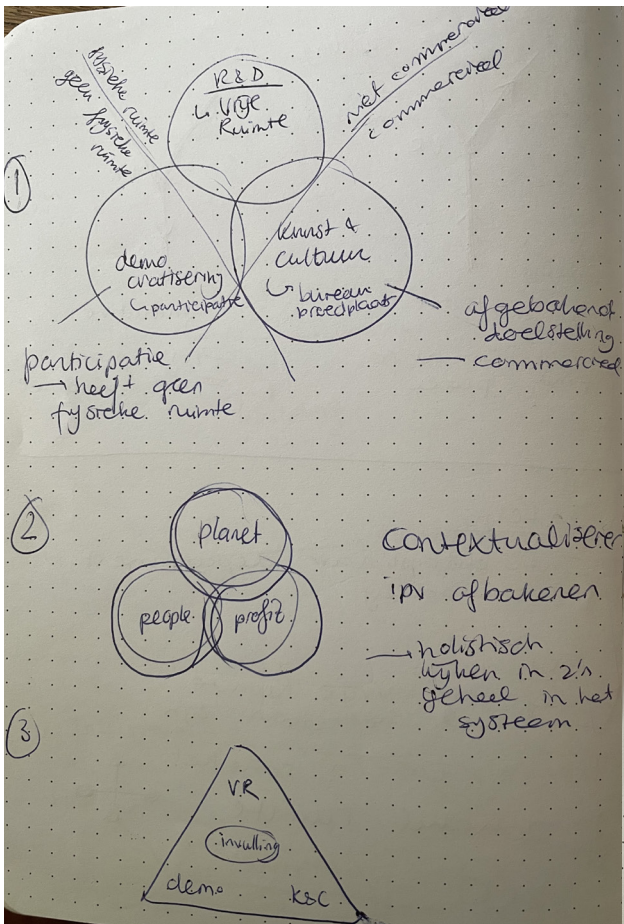 fysieke ruimte
geen fysieke
ruimte
R&D
↳ Vrije
Ruimte
niet commercieel
commercieel
1
demo
cratisering
↳ participatie
kunst &
cultuur
↳ bureau
broedplaats
participatie
→ heeft geen
fysieke ruimte
afgebakend
doelstelling
— commercieel
2
planet
people
profit
Contextualiseren
ipv afbakenen
→ holistisch
kijken in z'n
geheel in het
systeem
3
VR
invulling
demo
K&C